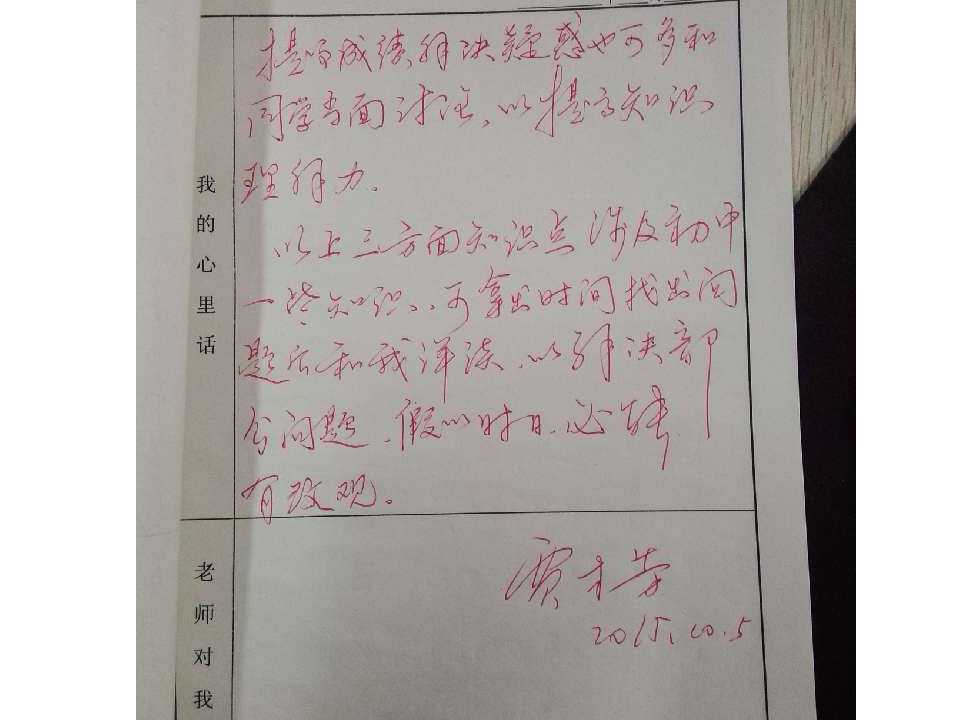 提高成绩解决疑惑也可多和
同学当面讨论、以提高知识
理解力.
以上三方面知识点涉及初中
一些知识、可拿出时间找出问
题后和我详谈、以解决部
分问题、假以时日、必
有改观。
贾
2015.10.5
我的心里话
老师对我